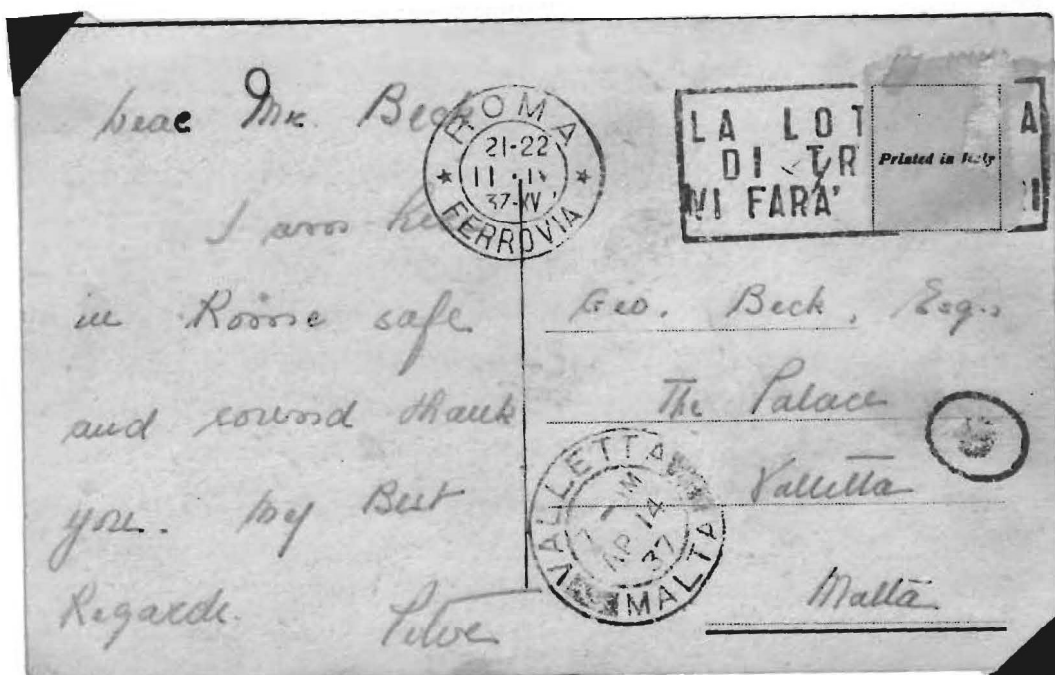 Dear Mr. Beck
I am he
in Rome safe
and sound thank
you. My Best
Regards.
ROMA
21-22
37-XV
FERROVIA
LA LOT A
DI TR
VI FARA' I
Printed in Italy
Geo. Beck, Esq.
The Palace
Valletta
Malta
VALLETTA
AP 14
37
MALTA